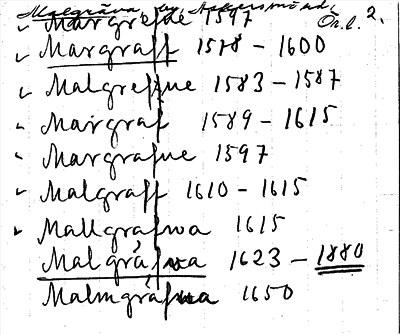 Malgråva
Ör. l. 2.
Margrefue 1597
Margraff 1578 - 1600
Malgreffue 1583 - 1587
Margraf 1589 - 1615
Margrafue 1597
Malgraff 1610 - 1615
Mallgrafwa 1615
Malgråfva 1623 - 1880
Malmgråfwa 1650